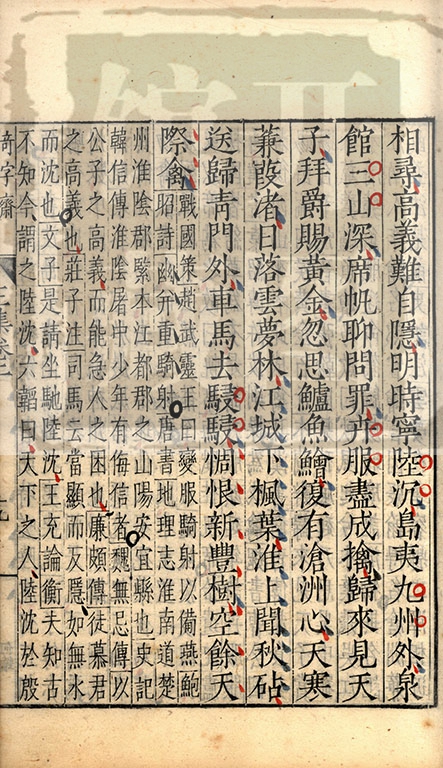 相尋高義難自隱明時寧陸沉島夷九州外泉
館三山深席帆聊問罪卉服盡成擒歸來見天
子拜爵賜黃金忽思鱸魚鱠復有滄洲心天寒
蒹葭渚日落雲夢林江城下楓葉淮上聞秋砧
送歸青門外車馬去駸駸惆悵新豐樹空餘天
際禽戰國策趙武靈王曰變服騎射以備燕鮑
昭詩幽幷重騎射唐書地理志淮南道楚
州淮陰郡緊本江都郡之山陽安宜縣也史記
韓信傳淮陰屠中少年有侮信者魏無忌傳以
公子之高義而能急人之困也廉頗傳徒慕君
之高義也莊子注司馬云當顯而反隱如無水
而沈也文子是謂坐馳陸沈王充論衡夫知古
不知今謂之陸沈六韜曰天下之人陸沈於殷
奇字齋